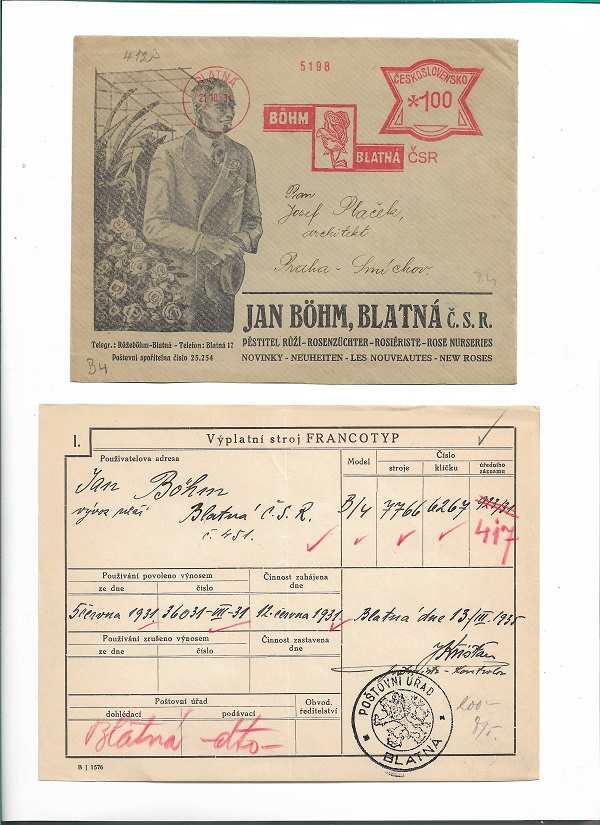 412
5198
BLATNÁ
21.10.31
ČESKOSLOVENSKO
*100
BÖHM
BLATNÁ
ČSR
Pan
Josef Plaček,
architekt
Praha - Smíchov.
B4
JAN BÖHM, BLATNÁ Č.S.R.
Telegr.: Růžeböhm-Blatná - Telefon: Blatná 17
PĚSTITEL RŮŽÍ-ROSENZÜCHTER-ROSIÉRISTE-ROSE NURSERIES
Poštovní spořitelna číslo 25.254
NOVINKY - NEUHEITEN - LES NOUVEAUTES - NEW ROSES
B4
I.
Výplatní stroj FRANCOTYP
Používatelova adresa
Model
Číslo
stroje
klíčku
úředního záznamu
Jan Böhm
vývoz růží Blatná Č.S.R.
č. 451.
B/4 7766 6267 923/31
417
Používání povoleno výnosem
ze dne
číslo
Činnost zahájena
dne
5 června 1931 36031-VII-31 12. června 1931
Blatná dne 13/III. 1935
Používání zrušeno výnosem
ze dne
číslo
Činnost zastavena
dne
Poštovní úřad
dohlédací
podávací
Obvod.
ředitelství
Blatná -dto-
POŠTOVNÍ ÚŘAD
BLATNÁ
B J 1576